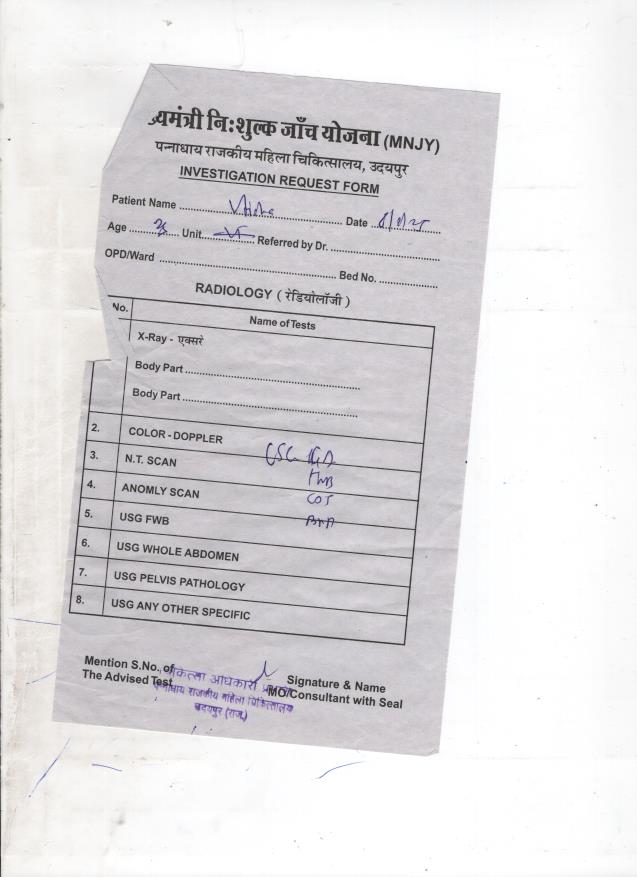 ्यमंत्री निःशुल्क जाँच योजना (MNJY)
पन्नाधाय राजकीय महिला चिकित्सालय, उदयपुर
INVESTIGATION REQUEST FORM
Patient Name .......... Date ..........
Age .......... Unit .......... Referred by Dr. ..........
OPD/Ward .......... Bed No. ..........
RADIOLOGY ( रेडियोलॉजी )
No. Name of Tests
X-Ray - एक्सरे
Body Part ..........
Body Part ..........
2. COLOR - DOPPLER
3. N.T. SCAN
FWB
4. ANOMLY SCAN
5. USG FWB
6. USG WHOLE ABDOMEN
7. USG PELVIS PATHOLOGY
8. USG ANY OTHER SPECIFIC
Mention S.No. of Signature & Name
The Advised Test MO/Consultant with Seal
पन्नाधाय राजकीय महिला चिकित्सालय
उदयपुर (राज.)